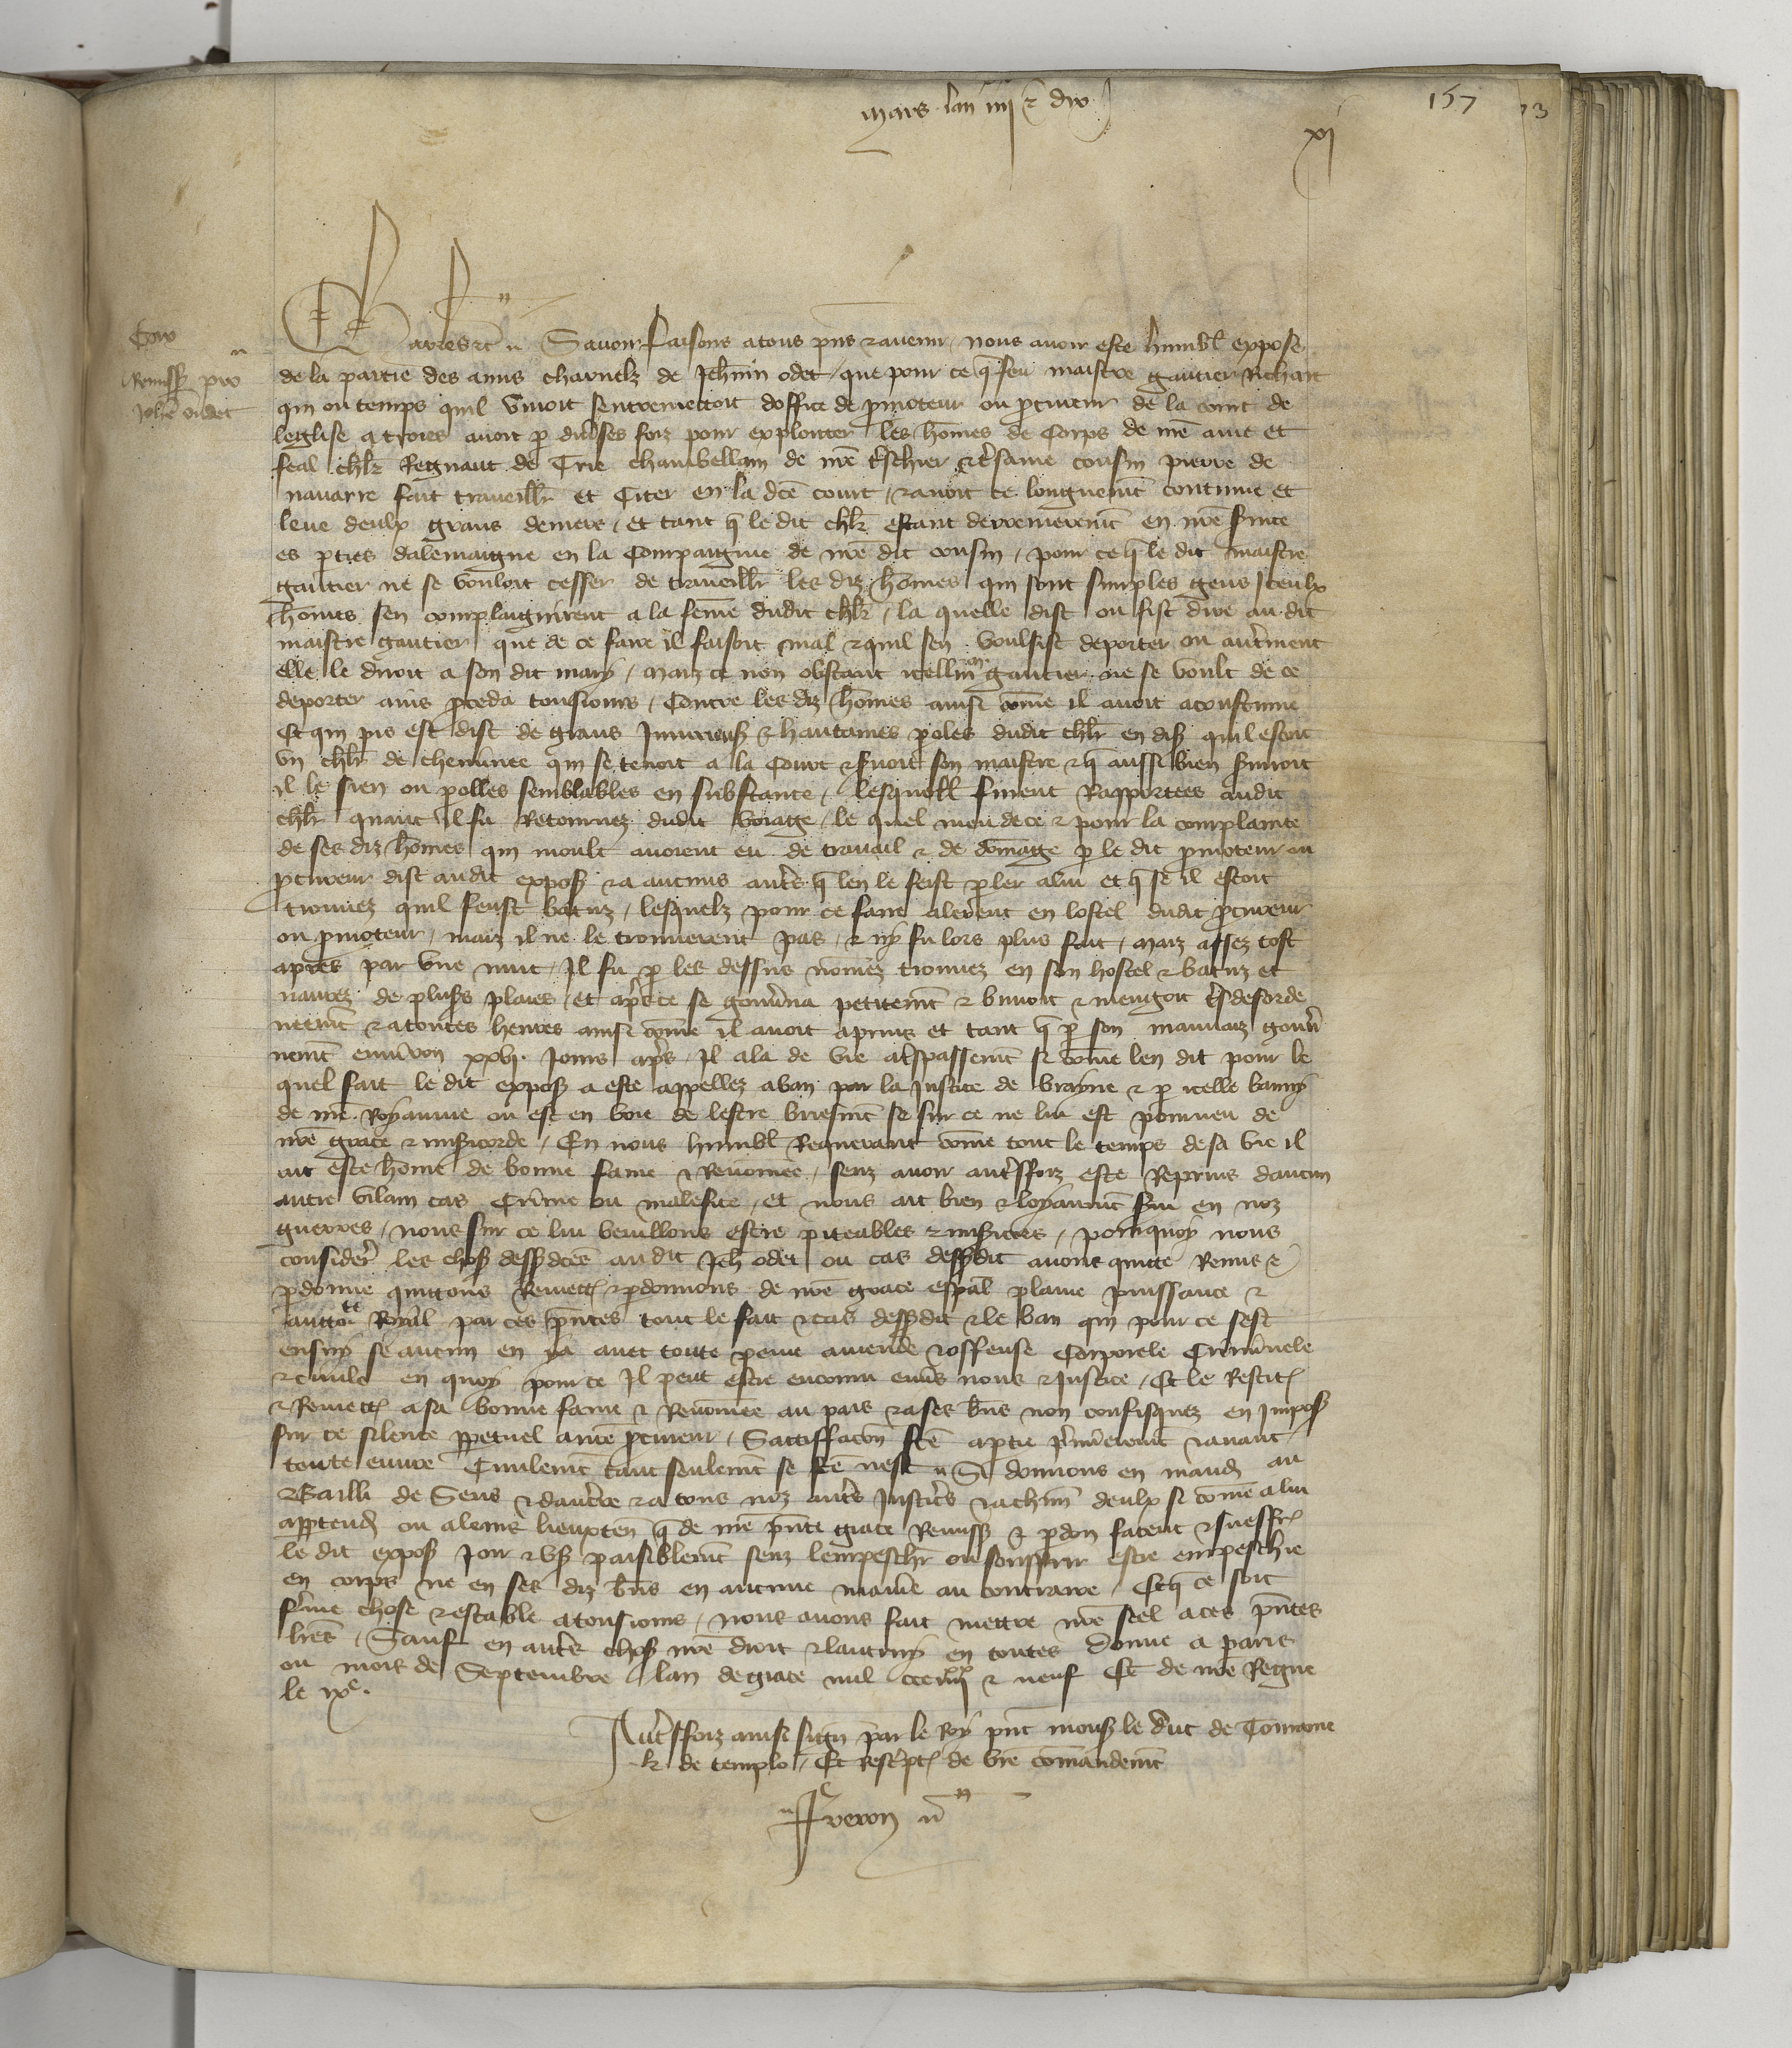 mars lan iiij xx & dix
157 73
xj
Remissio pro
Johe oudet
Charles &c Savoir faisons a tous pns & avenir nous avoir este humbl expose
de la partie des amis charnelz de Jehnin odet que pour ce q feu maistre gautier Richart
qui ou temps quil vivoit sentremettoit doffice de pmoteur ou pcureur de la court de
leglise a troies avoit p divses foiz pour exploiter les homes de corps de nre ame et
feal chlr Regnaut de Trie chambellam de nre tschier & tsame cousin pierre de
navarre fait traveillr et Citer en la dce court & avoit ce longuemt continue et
leve deulx grans deniers et tant q le dit chlr estant derrenieremt en nre svice
es pties dalemaigne en la compaignie de nre dit cousin pour ce q le dit maistre
gautier ne se vouloit cesser de traveillr les diz homes qui sont simples gens iceulx
homes sen complaignirent a la feme dudit chlr la quelle dist ou fist dire au dit
maistre gautier que de ce faire il faisoit mal & quil sen voulsist deporter ou autrment
elle le diroit a son dit mary maiz ce non obstant icellui me gautier ne se voult de ce
deporter ains pceda tousiours contre les diz homes ainsi come il avoit acoustume
Et qui pis est dist de grans Iniurieuses & hautaines poles dudit chlr en dis quil estoit
un chlr de cheminee qui se tenoit a la court & svoit son maistre & q aussi bien svoit
il le sien ou polles semblables en substance lesquelles furent Rapportees audit
chlr quant il fu Retournez dudit voiage le quel meu de ce & pour la complainte
de ses diz homes qui moult avoient eu de travail & de domage p le dit pmoteur ou
pcureur dist audit expos & a aucuns autrs q len le feist pler a lui et q se il estoit
trouvez quil feust batuz lesquelz pour ce faire alerent en lostel dudit pcureur
ou pmoteur maiz il ne le trouverent pas & ny fu lors plus fait maiz assez tost
apres par une nuit Il fu p les dessus nomez trouvez en son hostel & batuz et
navrez de pluss plaies et apres ce se gouvna petitemt & buvoit & mengoit ts desorde
neemt & a toutes heures ainsi come il avoit aprins et tant q p son mauvaiz gouv
nemt environ xxvj jours aps Il ala de vie a trspassemt si come len dit pour le
quel fait le dit expos a este appellez a ban par la justice de brayne & p icelle banny
de nre Royaume ou est en voie de lestre briefmt se sur ce ne lui est pourveu de
nre grace & misicorde En nous humbl Requerant come tout le temps de sa vie il
ait este home de bonne fame & Renomee senz avoir autrsfoiz este Reprins daucun
autre vilain cas Crime ou malefice et nous ait bien & loyaumt svi en noz
guerres nous sur ce lui veuillons estre piteables & misicors pourquoy nous
consider les choses dessdces au dit Jeh odet ou cas dessdit avons quitte Remis &
pdonne quittons Remett & pdonnons de nre grace espal plaine puissance &
auttorte Royal par ces pntes tout le fait & cas dessdit & le ban qui pour ce sest
ensuy se aucun en ya avec toute peine amende & offense Corporele Criminele
& civile en quoy pour ce Il peut estre encouru envs nous & Justice Et le Restit
& Remett a sa bonne fame & Renomee au pais & a ses bns non confisquez en impos
sur ce silence ppetuel a nre pcureur Sattiffacon fce aptie premieremt & avant
toute euvre Civilemt tant seulemt se fce nest Si donnons en mand au
Bailli de Sens & daucerre & a tous noz autrs Justicrs & a chun deulx si come a lui
apptendr ou a leurs lieuxten q de nre pnte grace Remiss & pdon facent & sueffr
le dit expos Jour & us paisiblemt senz lempeschr ou souffrir estre empeschie
en corps ne en ses diz bns en aucune maniere au contraire Et q ce soit
ferme chose & estable a tousiours nous avons fait mettre nre seel a ces pntes
lres Sauf en autrs choses nre droit & lautruy en toutes Donne a paris
ou mois de Septembre lan de grace mil ccc iiijxx & neuf Et de nre Regne
le ixe.
Autrsfoiz ainsi sign par le Roy pnt mons le duc de Touraine
de templo Et Rescript de vre comandemt
Freron